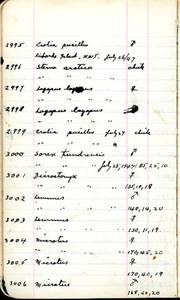 2995 Erolia pusillus ♂
Island, NWT. July 26/47
2996 Sterna arctica chick
2997 Lagopus lagopus ♀
2998 Lagopus lagopus
2999 Erolia pusillus July 27 chick
3000 Sorex tundrensis ♂
July 25, 1947; 85, 25, 10
3001 Dicrostonyx ♀
3002 Lemmus ♂
140, 14, 20
3003 Lemmus ♀
130, 11, 19
3004 Microtus ♀
170, 45, 20
3005 Microtus ♀
170, 40, 19
3006 Microtus ♂
168, 40, 20